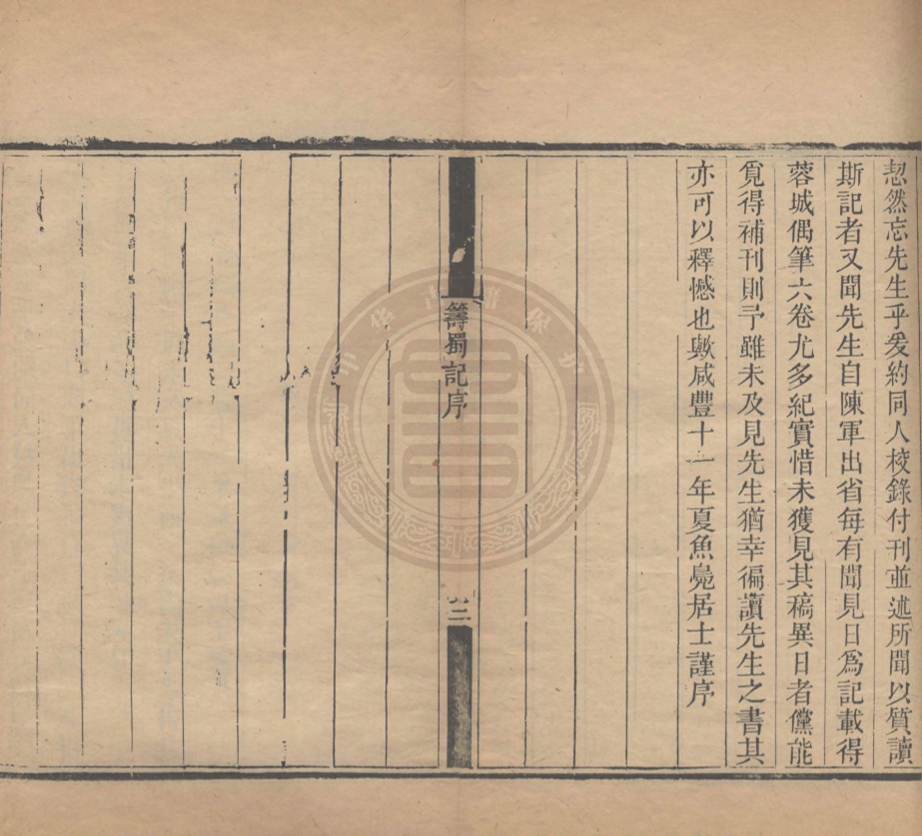 恝然忘先生乎爰約同人校錄付刊並述所聞以質讀
斯記者又聞先生自陳軍出省每有聞見日爲記載得
蓉城偶筆六卷尤多紀實惜未獲見其稿異日者儻能
覓得補刊則予雖未及見先生猶幸徧讀先生之書其
亦可以釋憾也歟咸豐十一年夏魚鳧居士謹序
籌蜀記序
三